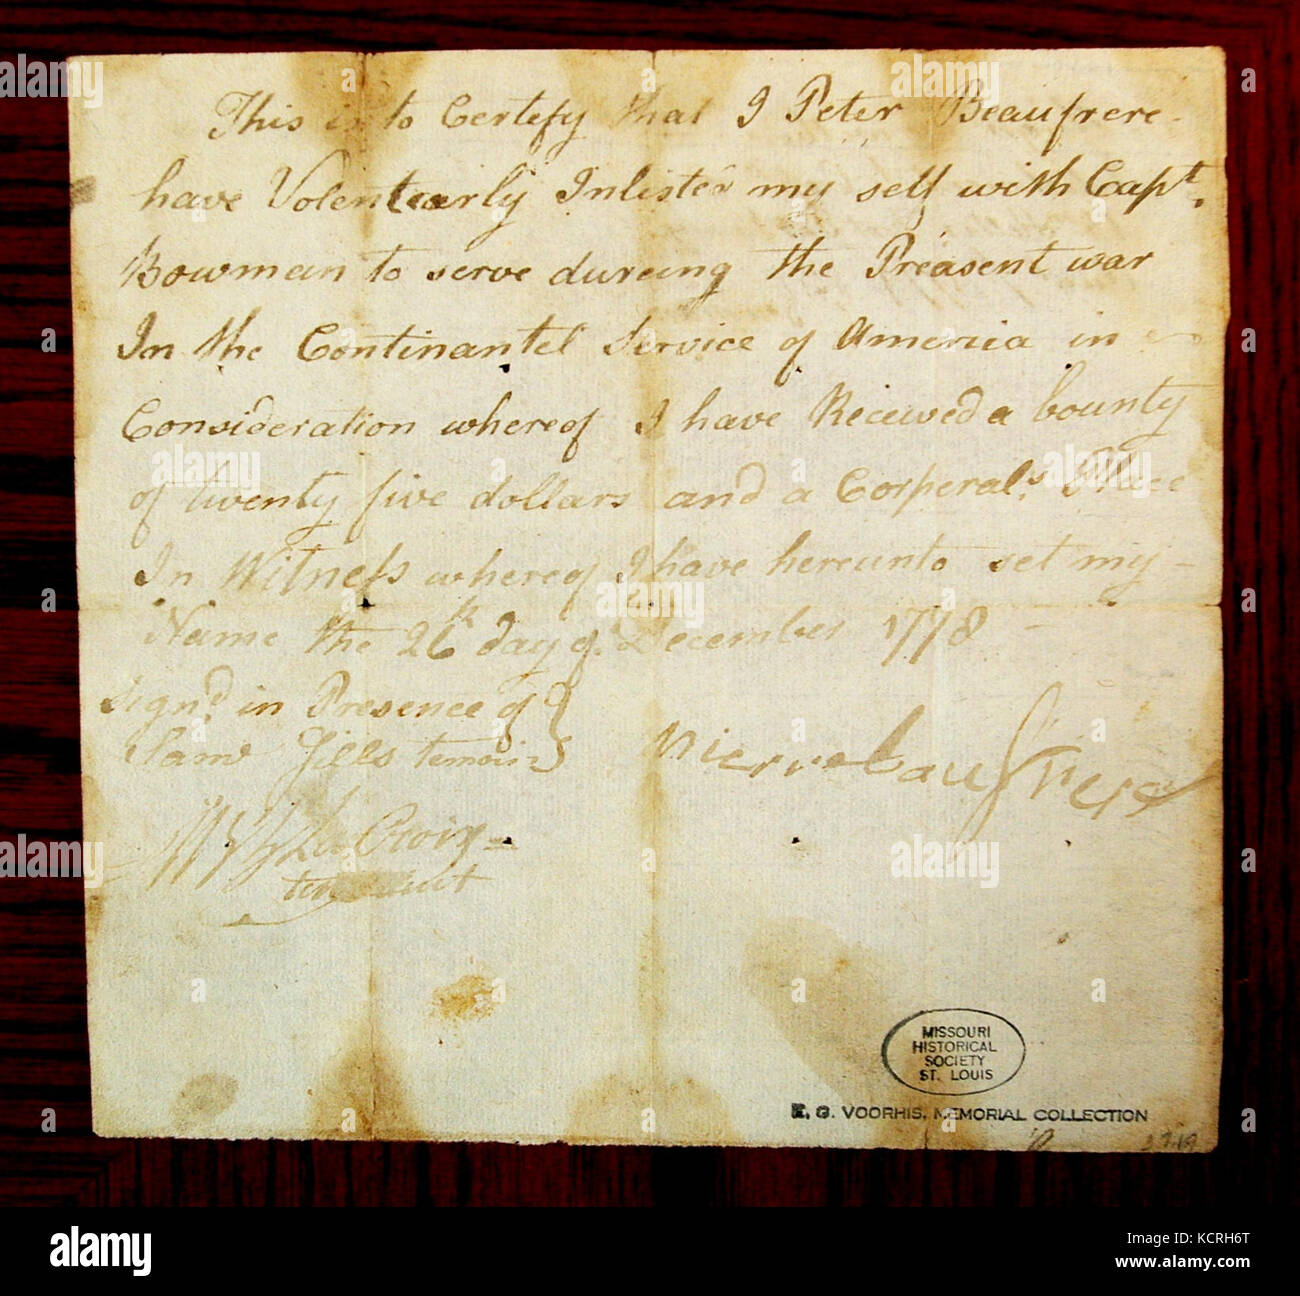 This is to Certefy that I Peter Beaufrere
have Volentearly Inlisted my self with Capt.
Bowman to serve dureing the Preasent war
In the Continantel Service of America in
Consideration whereof I have Received a bounty
of twenty five dollars and a Corperal,s Place
In Witness whereof I have hereunto set my
Name the 26th day of December 1778
Sign,d in Presence of
temoin
Croix
MISSOURI
HISTORICAL
SOCIETY
ST. LOUIS
E. G. VOORHIS, MEMORIAL COLLECTION
alamy
Image ID: KCRH6T
www.alamy.com